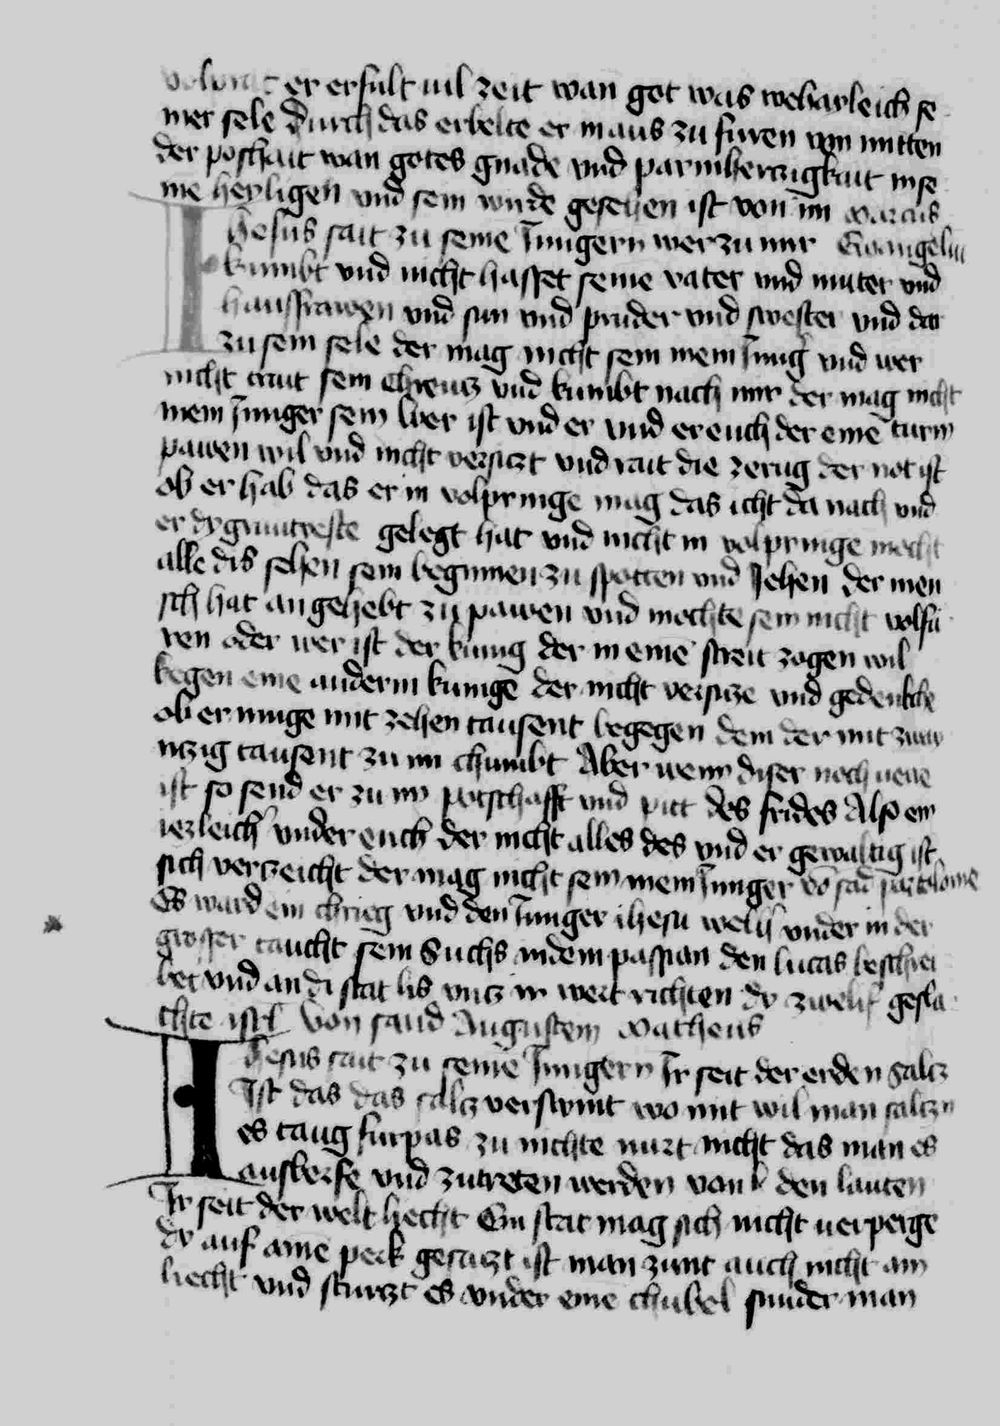 volbracht er erfult uil zeit wan got was wehagleich se
iner sele durch das erbelte er in aus zu furen von mitten
der poshait wan gotes gnade vnd parmherczigkait in se
ine heyligen vnd sein wirde gesehen ist von im Marcus
Ihesus sait zu seine Jungern wer zu mir Ewangeliu
kumbt vnd nicht hasset seine vater vnd muter vnd
hausfrawen vnd sun vnd pruder vnd swester vnd dar
zu sein sele der mag nicht sein mein Jung vnd wer
nicht trait sein Chreucz vnd kumbt nach mir der mag nicht
mein Junger sein Wer ist vnd er vnder euch der eine turm
pawen wil vnd nicht versiczt vnd rait die zerug der not ist
ob er hab das er in volpringe mag das icht da nach vnd
er dy gruntveste gelegt hat vnd nicht in volpringe mocht
alle dis sehen sein beginnen zu spotten vnd Jehen der men
sch hat angehebt zu pawen vnd mochte sein nicht volfu
ren oder wer ist der kunig der in eine streit zogen wil
kegen eine anderm kunige der nicht versicze vnd gedenkche
ob er muge mit zehen tausent begegen dem der mit zwai
nczig tausent zu im chumbt Aber wenn diser noch uerre
ist so send er zu im potschafft vnd pitt des frides Also ein
iezleich vnder euch der nicht alles des vnd er gewaltig ist
sich verzeicht der mag nicht sein mein Junger vo sad partelome
Es ward ein chrieg vnd den Junger ihesu welich vnder in der
grosser taucht sein Suchs in dem passian den lucas beschrei
bet vnd an di stat lis vncz ir wert richten dy zwelif gesla
chte isrl von sand Augustein Matheus
Ihesus sait zu seine Jungern Ir seit der erden salcz
Ist das das salcz verswint wo mit wil man salczn
es taug furpas zu nichte nurt nicht das man es
ausberfe vnd zutreten werden von den lauten
Ir seit der welt liecht Ein stat mag sich nicht verperge
dy auf aine perk gesaczt ist man zunt auch nicht ain
liecht vnd sturczt es vnder eine chubel sunder man